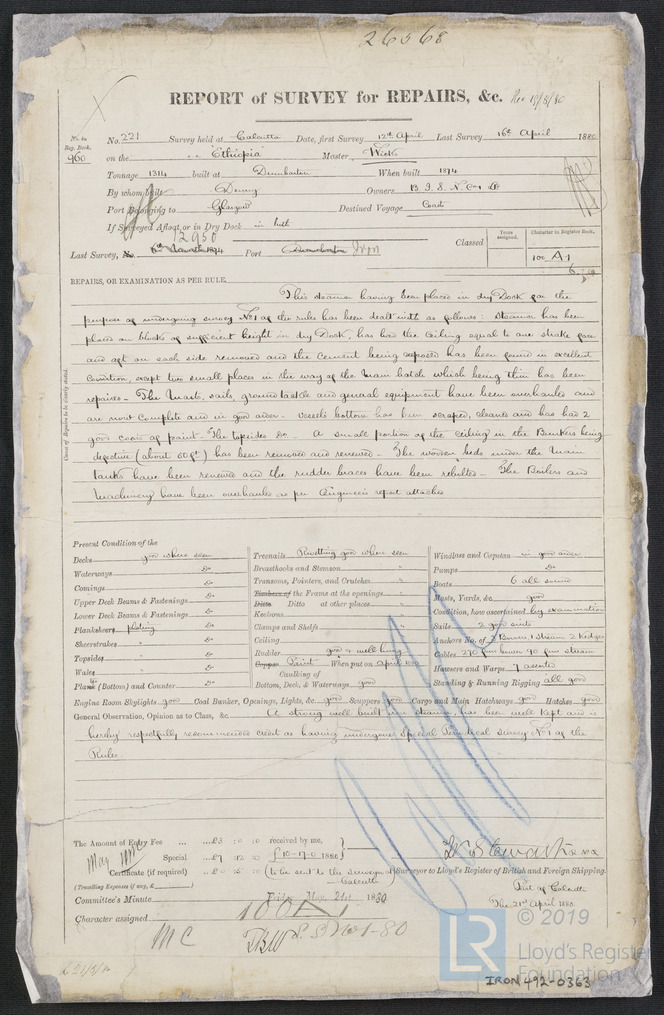 26568
REPORT of SURVEY for REPAIRS, &c. Rec 19/5/80
No. in Reg. Book. 960
No. 221 Survey held at Calcutta Date, first Survey 12th April Last Survey 16th April 1880
on the "Ethiopia" Master Wick
Tonnage 1314 built at Dumbarton When built 1874
By whom built Denny Owners B. I. S. N. Co Ld
Port Belonging to Glasgow Destined Voyage Coast
If Surveyed Afloat or in Dry Dock in both
2950
Last Survey, No. Port Dumbarton Iron Classed
Years assigned.
Character in Register Book.
100 A 1
REPAIRS, OR EXAMINATION AS PER RULE.
Cause of Repairs to be clearly stated.
This steamer having been placed in dry Dock for the
purpose of undergoing survey No 1 of the rules has been dealt with as follows: Steamer has been
placed on blocks of sufficient height in dry Dock, has had the Ceiling equal to one strake fore
and aft on each side removed and the cement being exposed has been found in excellent
Condition, except two small places in the way of the Main hatch which being thin has been
repaired. The Masts, sails, ground tackle and general equipment have been overhauled and
are now complete and in good order. Vessels bottom has been scraped, cleaned and has had 2
good coats of paint. The topsides Do. A small portion of the Ceiling in the Bunkers being
defective (about 60 ft) has been removed and renewed. The wooden beds under the Main
Tanks have been renewed and the rudder braces have been refitted. The Boilers and
Machinery have been overhauled as per Engineers report attached
Present Condition of the
Decks good where seen
Waterways Do
Comings Do
Upper Deck Beams & Fastenings Do
Lower Deck Beams & Fastenings Do
Planksheers plating Do
Sheerstrakes " Do
Topsides " Do
Wales Do
Plank (Bottom) and Counter Do
Treenails Rivetting good where seen
Breasthooks and Stemson "
Transoms, Pointers, and Crutches "
Timbers of the Frame at the openings "
Ditto Ditto at other places "
Keelsons "
Clamps and Shelfs "
Ceiling
Rudder good & well hung
Copper Paint When put on April 1880
Caulking of
Bottom, Deck, & Waterways good
Windlass and Capstan in good order
Pumps Do
Boats 6 all sound
Masts, Yards, &c. good
Condition, how ascertained by examination
Sails 2 good suits
Anchors No. of 3 Bower 1 Stream 2 Kedges
Cables 270 fms bower 90 fms stream
Hawsers and Warps 7 assorted
Standing & Running Rigging all good
Engine Room Skylights good Coal Bunker, Openings, Lights, &c. good Scuppers good Cargo and Main Hatchways good Hatches good
General Observation, Opinion as to Class, &c. A strong well built iron steamer, has been well kept and is
hereby respectfully recommended credit as having undergone Special Periodical Survey No 1 of the
Rules.
The Amount of Entry Fee ... £3 : 0 : 0 received by me,
Special ... £7 : 12 : 0 £10-17-0 1880
Certificate (if required) £0 : 5 : 0 (to be sent to the surveyor at Calcutta)
(Travelling Expenses if any, £ )
Surveyor to Lloyd's Register of British and Foreign Shipping.
Port of Calcutta
The 21st April 1880
Committee's Minute Friday May 21st 1880
Character assigned 100 A 1
MC
© 2019
LR
Lloyd's Register
Foundation
IRON 492-0363